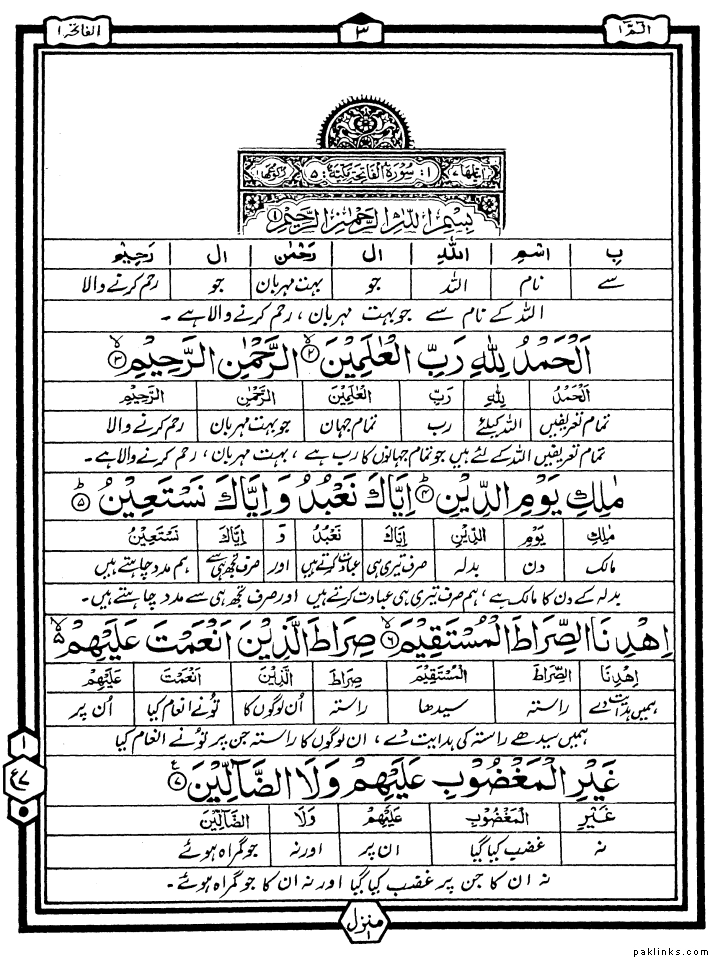 الٓمّٓ ١ ٣ الفاتحة ١
اٰیٰتُهَا ٧ ١: سُوْرَةُ الْفَاتِحَةِ مَكِّیَّةٌ: ٥ رُكُوْعُهَا ١
بِسْمِ اللّٰهِ الرَّحْمٰنِ الرَّحِیْمِ ١
بِ اسْمِ اللّٰهِ ال رَحْمٰن ال رَحِیْمِ
سے نام اللہ جو بہت مہربان جو رحم کرنے والا
اللہ کے نام سے جو بہت مہربان ، رحم کرنے والا ہے ۔
اَلْحَمْدُ لِلّٰهِ رَبِّ الْعٰلَمِیْنَ ٢ۙ الرَّحْمٰنِ الرَّحِیْمِ ٣ۙ
اَلْحَمْدُ لِلّٰهِ رَبِّ الْعٰلَمِیْنَ الرَّحْمٰنِ الرَّحِیْمِ
تمام تعریفیں اللہ کیلئے رب تمام جہان جو بہت مہربان رحم کرنے والا
تمام تعریفیں اللہ کے لئے ہیں جو تمام جہانوں کا رب ہے ، بہت مہربان ، رحم کرنے والا ہے ۔
مٰلِكِ یَوْمِ الدِّیْنِ ٤ؕ اِیَّاكَ نَعْبُدُ وَ اِیَّاكَ نَسْتَعِیْنُ ٥ؕ
مٰلِكِ یَوْمِ الدِّیْنِ اِیَّاكَ نَعْبُدُ وَ اِیَّاكَ نَسْتَعِیْنُ
مالک دن بدلہ صرف تیری ہی عبادت کرتے ہیں اور صرف تجھ ہی سے ہم مدد چاہتے ہیں
بدلہ کے دن کا مالک ہے ، ہم صرف تیری ہی عبادت کرتے ہیں اور صرف تجھ ہی سے مدد چاہتے ہیں ۔
اِهْدِنَا الصِّرَاطَ الْمُسْتَقِیْمَ ٦ۙ صِرَاطَ الَّذِیْنَ اَنْعَمْتَ عَلَیْهِمْ ۙ۵
اِهْدِنَا الصِّرَاطَ الْمُسْتَقِیْمَ صِرَاطَ الَّذِیْنَ اَنْعَمْتَ عَلَیْهِمْ
ہمیں ہدایت دے راستہ سیدھا راستہ اُن لوگوں کا تُونے انعام کیا اُن پر
ہمیں سیدھے راستہ کی ہدایت دے ، ان لوگوں کا راستہ جن پر تُونے انعام کیا
غَیْرِ الْمَغْضُوْبِ عَلَیْهِمْ وَلَا الضَّآلِّیْنَ ٧ۧ
غَیْرِ الْمَغْضُوْبِ عَلَیْهِمْ وَلَا الضَّآلِّیْنَ
نہ غضب کیا گیا ان پر اور نہ جو گمراہ ہوئے
نہ ان کا جن پر غضب کیا گیا اور نہ ان کا جو گمراہ ہوئے ۔
١
ع ٧
منزل ١
paklinks.com